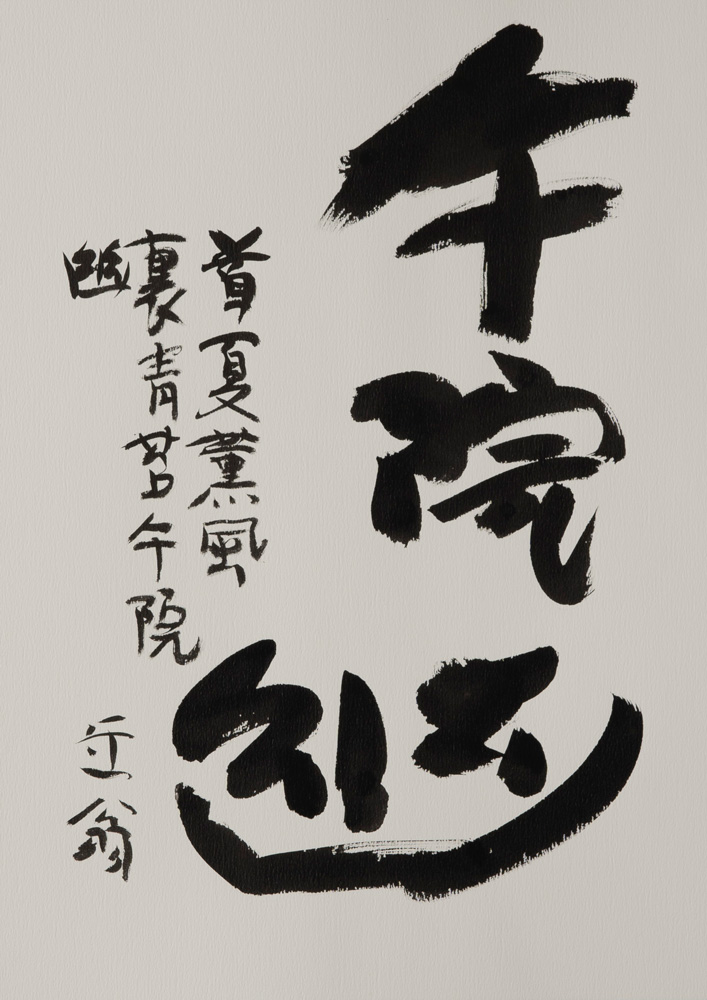 午院幽
首夏薰風
裏青苔午院
幽
翁